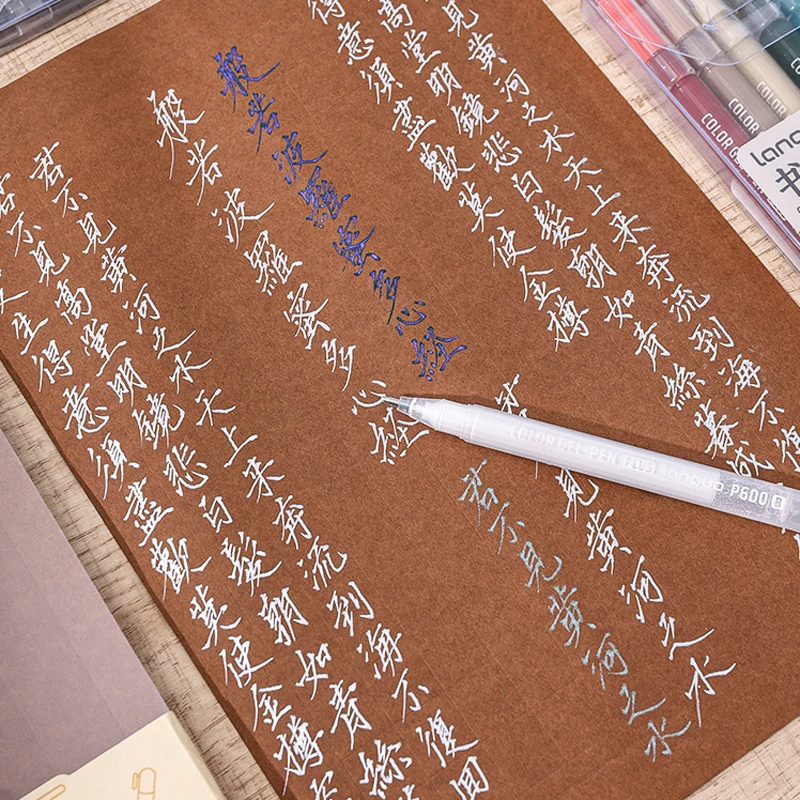 見黃河之水天上來奔流到海不復
高堂明鏡悲白髮朝如青絲暮成
得意須盡歡莫使金樽
般若波羅蜜多心經
般若波羅蜜多心經
見黃河之水
君不見黃河之水
君不見黃河之水天上來奔流到海不復回
君不見高堂明鏡悲白髮朝如青絲
生得意須盡歡莫使金樽
COLOR GEL-PEN PLUS languo P600 B
COLOR
COLOR
COLOR